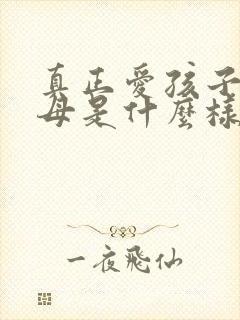 真正愛孩子
母是什麼樣
一夜飛仙